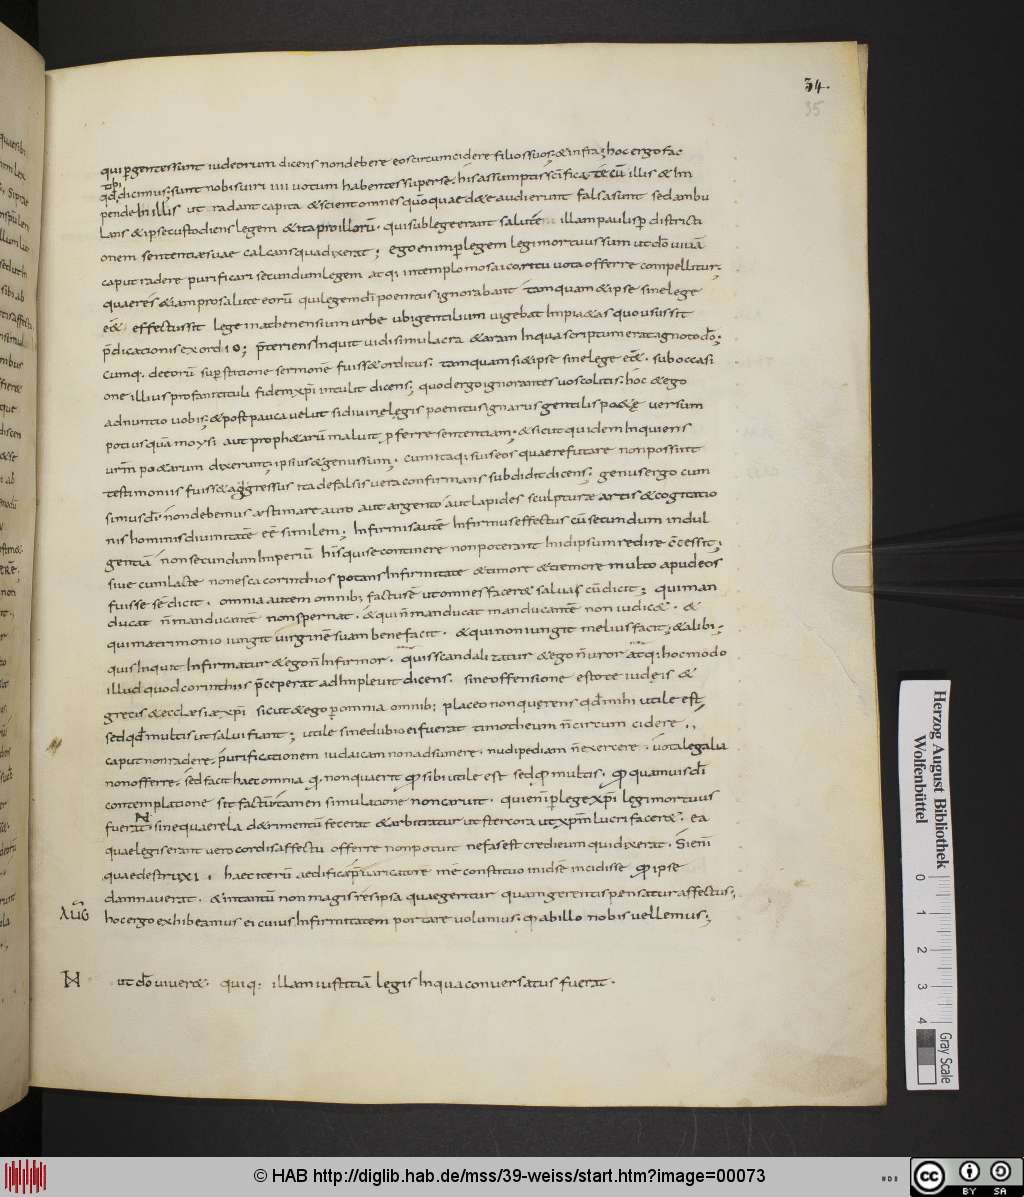 34.
35
qui per gentes sunt iudeorum dicens non debere eos circumcidere filios suos; & infra; hoc ergo fac
qđ dicimus; sunt nobis uiri iiii uotum habentes super se. his assumptis scīfica te cū illis & In
pende In illis ut radant capita & scient omnes quō quae de te audierunt falsa sunt sed ambu
lans & ipse custodiens legem & ita pro illorū. qui sub lege erant salutē illam paulisper districti
onem sententiae suae calcans qua dixerat; ego enim per legem legi mortuus sum ut dō viuā
caput radere purificari secundum legem atq; in templo mosaico ritu uota offerre compellitur;
quaeres & iam pro salute eorū qui legem dī poenitus ignorabant tamquam & ipse sine lege
eēt effectus sit lege in athenensium urbe ubi gentilium uigebat Impi&as quo usus sit
p̄dicationis exordio; p̄teriens Inquit uidi simulacra & aram In qua scriptum erat agnoto dō;
cumq. de eorū superstitione sermone fuiss& orditus. tamquam si & ipse sine lege eēt. sub occasi
one illius profani tituli fidem xp̄i intulit dicens; quod ergo ignorantes uos colitis. hoc & ego
adnuntio uobis; & post pauca uelut si diuinę legis poenitus ignarus gentilis po&ę uersum
potius quā moysi aut proph&arū maluit p̄ferre sententiam. & sicut quidem Inquiens
ur̄m po&arum dixerunt; ipsius & genus sum. cum itaq; suis eos quae refutare non possint
testimoniis fuiss& aggressus ita de falsis uera confirmans subdidit dicens; genus ergo cum
simus dī non debemus aestimare auro aut argento aut lapides sculpturae artis & cogitatio
nis hominis diuinitatē eē similem; Infirmis autē Infirmus effectus cū secundum indul
gentiā non secundum Imperiū his qui se continere non poterant Inidipsum redire c̄cessit;
siue cum lacte non esca corinthios potans Infirmitate & timore & tremore multo apud eos
fuisse se dicit. omnia autem omnib; factus ē ut omnes facer& saluas cū dicit; qui man
ducat n̄ manducantē non spernat. & qui n̄ manducat manducantē non iudic&. &
qui matrimonio iungit uirginē suam bene facit. & qui non iungit melius facit; & alibi;
quis Inquit Infirmatur & ego n̄ Infirmor. quis scandalizatur & ego n̄ uror atq; hoc modo
illud quod corinthiis p̄ceperat adImpleuit dicens. sine offensione estote iudeis &
grecis & ecclesiae xp̄i sicut & ego per omnia omnib; placeo non querens qd mihi utile est
sed qđ multis ut salui fiant; utile sine dubio ei fuerat timotheum n̄ circumcidere.
caput non radere. purificationem iudaicam non adsumere. nudipediam n̄ exercere. uota legalia
non offerre. sed facit haec omnia q. non querit quod sibi utile est sed quod multis. quod quamuis dī
contemplatione sit factū tamen simulatione non caruit. qui enī per lege xp̄i legi mortuus
fuerat sine quaerela d&rimentū fecerat & arbitratur ut stercora ut xp̄m lucrifacer&. ea
quae legis erant uero cordis affectu offerre non potuit nefas est credi eum qui dixerat. Si enī
quae destruxi. haec iterū aedifico p̄uaricatore mē constituo in id se incidisse quod ipse
damnauerat. & in tantū non magis res ipsa quae geritur quam gerentis pensatur affectus;
hoc ergo exhibeamus ei cuius Infirmitatem portare uolumus. quod ab illo nobis uellemus;
ut dō uiuer&. quiq; illam iustitiā legis In qua conuersatus fuerat.
Herzog August Bibliothek
Wolfenbüttel
0 1 2 3 4
Gray Scale
© HAB http://diglib.hab.de/mss/39-weiss/start.htm?image=00073
cc BY SA